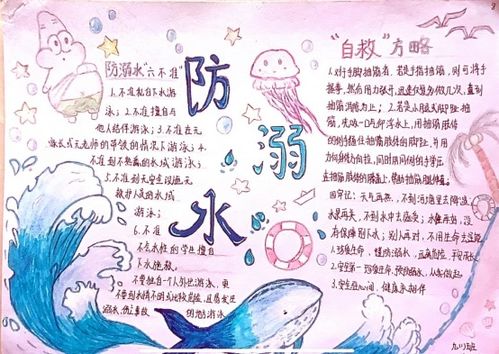 防溺水
防溺水"六不准"
1.不准私自下水游
泳; 2.不准擅自与
他人结伴游泳; 3.不准在无
家长或无老师的带领的情况下游泳; 4.不
准到不熟悉的水域游泳;
5.不准到无安全设施无
救护人员的水域
游泳;
6.不准
不会水性的学生擅自
下水施救。
不要独自一个人外出游泳,更
不要到水情不明或比较危险,且易发生
溺水伤亡事故的地方游泳
"自救"方略
1.对于手脚抽筋者,若是手指抽筋,则可将手
握拳,然后用力张开,迅速反复多做几次,直到
抽筋消除为止; 2.若是小腿或脚趾抽
筋,先吸一口气仰浮水上,用抽筋肢体
对侧手握住抽筋肢体的脚趾,并用
力向身体方向拉,同时用同侧手掌压
在抽筋肢体的膝盖上,帮助抽筋腿伸直。
天气再热,不到河塘里去降温
水果再大,不到水中去
有保障别下水;别人再对,不用生命去
1.珍惜生命,谨防溺水,
2.安全第一,珍惜生命,预防溺水,从我做起
3.安全在心间,健康永相伴